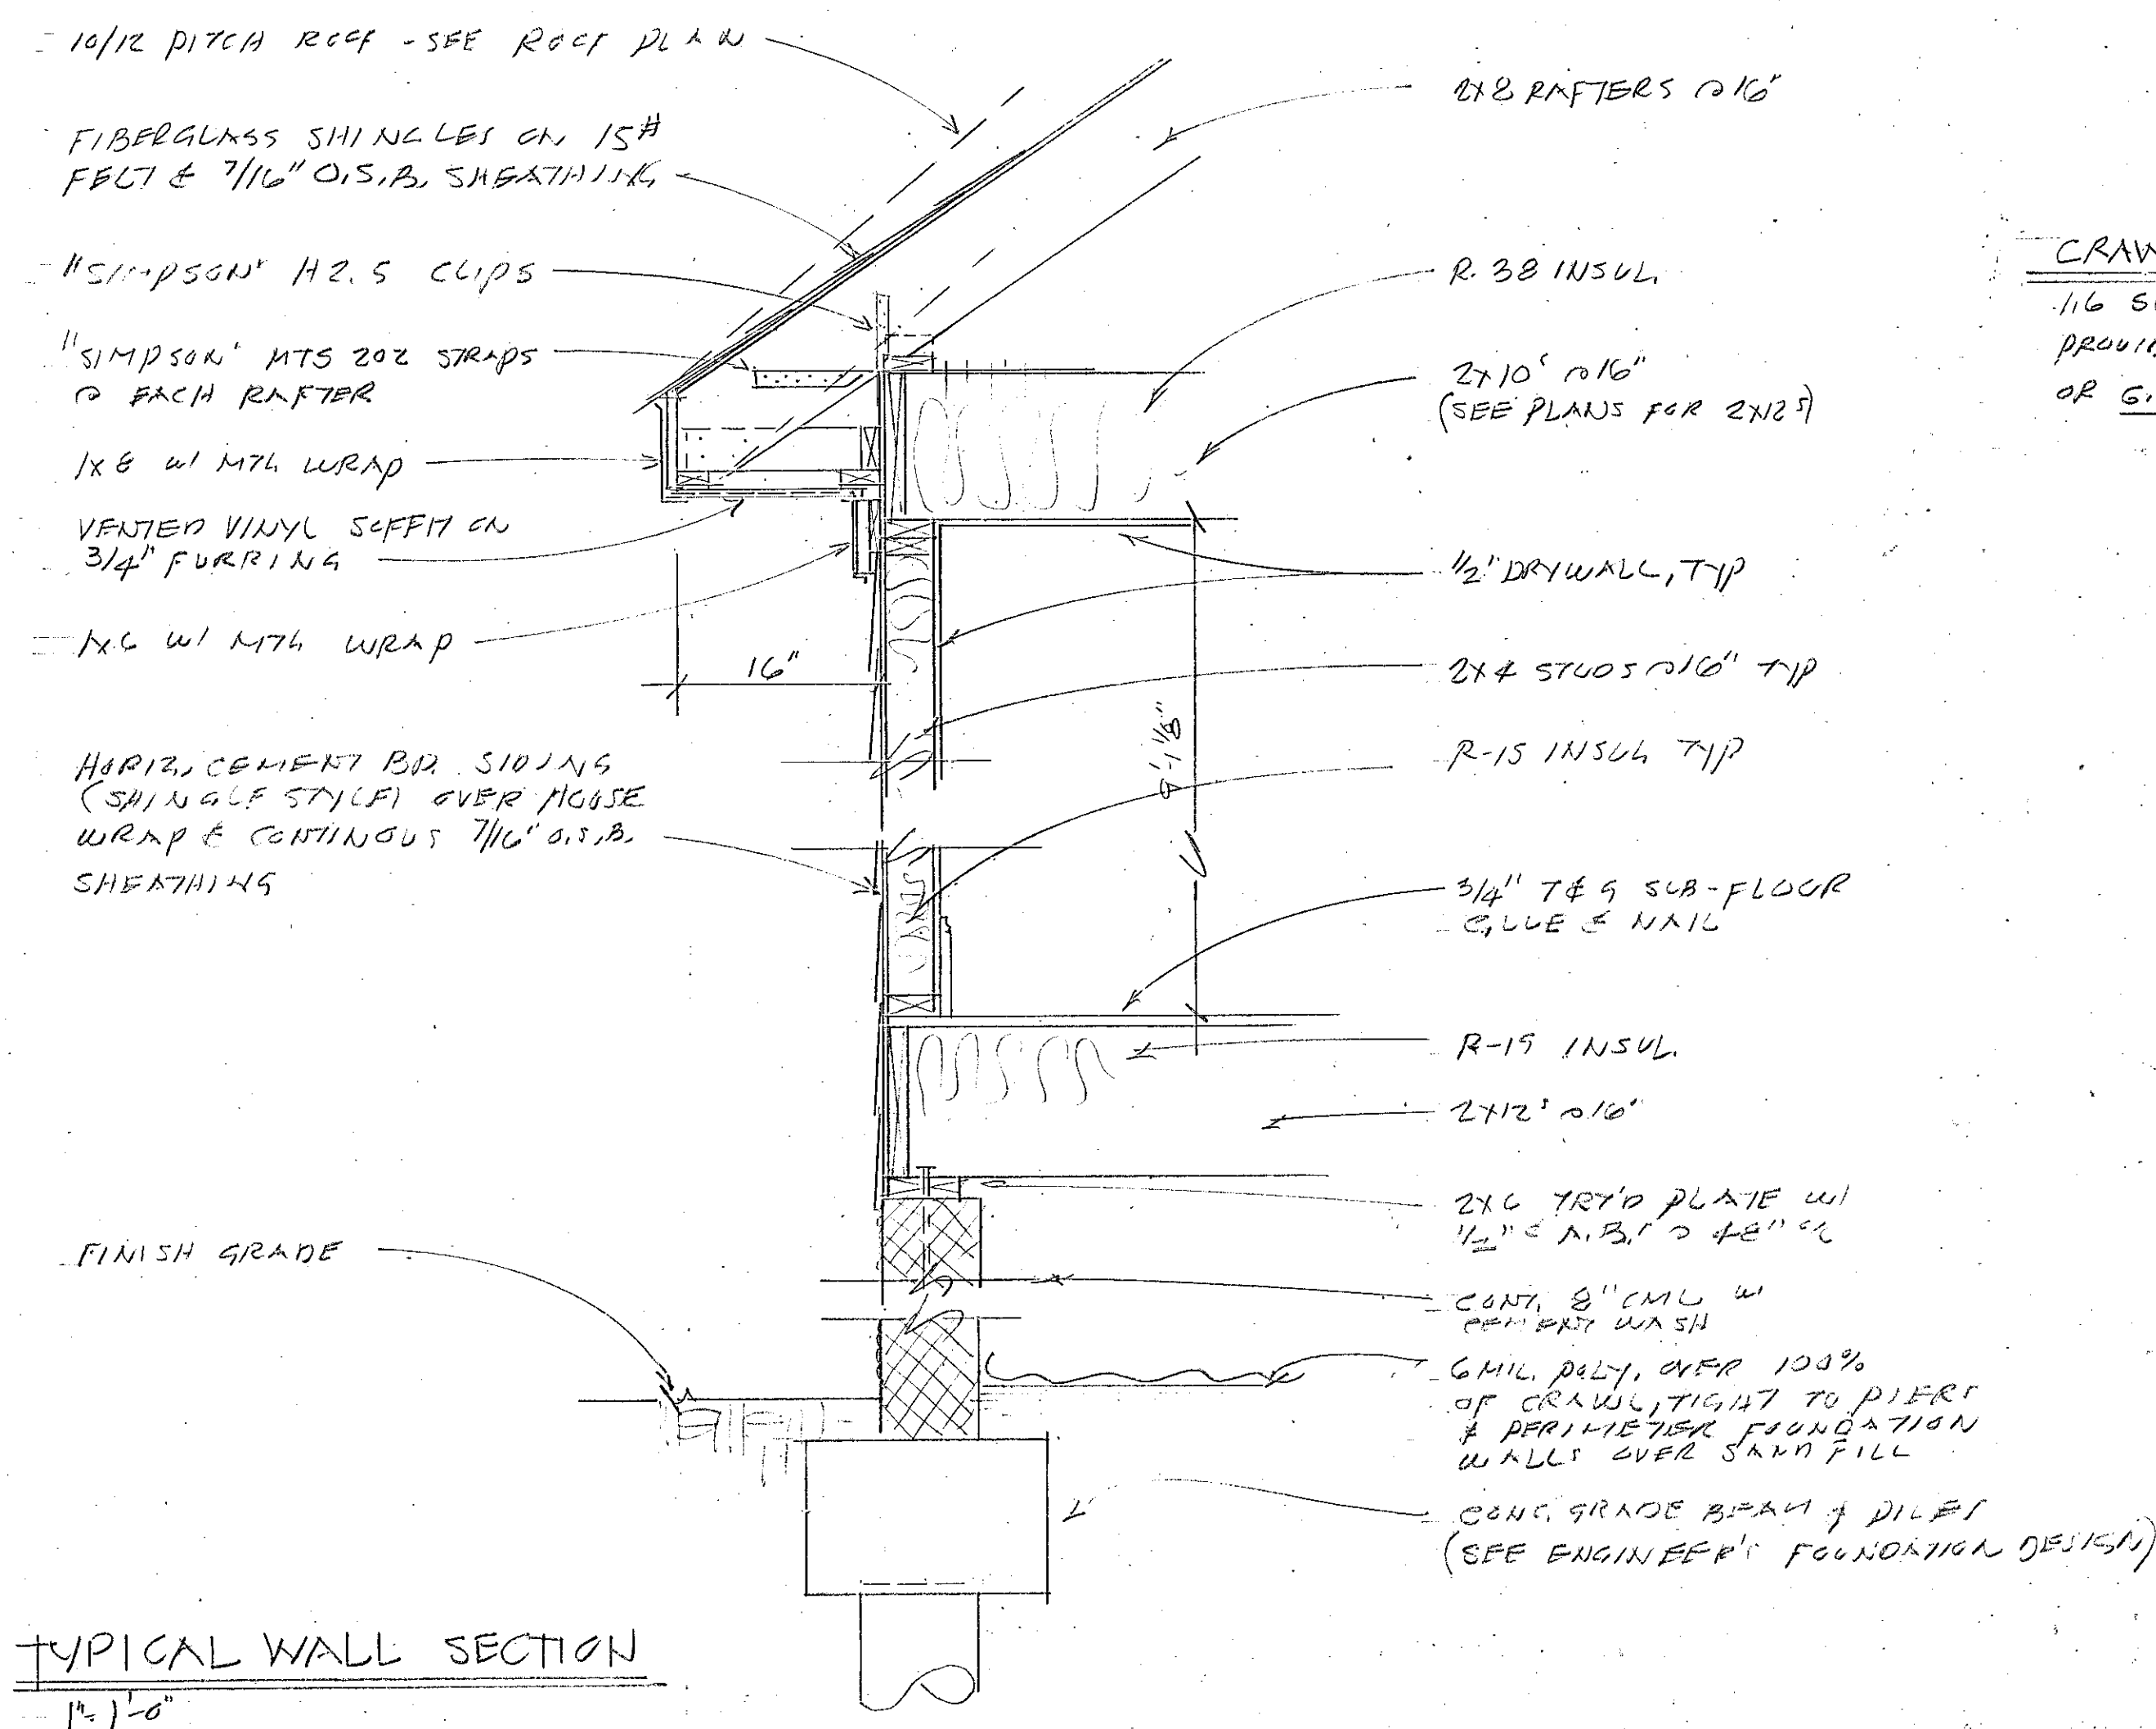 10/12 PITCH ROOF - SEE ROOF PLAN
FIBERGLASS SHINGLES ON 15#
FELT & 7/16" O.S.B. SHEATHING
"SIMPSON" H2.5 CLIPS
"SIMPSON" MTS 20Z STRAPS
@ EACH RAFTER
1X8 W/ MTL WRAP
VENTED VINYL SOFFIT ON
3/4" FURRING
1X6 W/ MTL WRAP
16"
HORIZ. CEMENT BD. SIDING
(SHINGLE STYLE) OVER HOUSE
WRAP & CONTINOUS 7/16" O.S.B.
SHEATHING
FINISH GRADE
2X8 RAFTERS @ 16"
R-38 INSUL.
2X10'S @ 16"
(SEE PLANS FOR 2X12'S)
1/2" DRYWALL, TYP
2X4 STUDS @ 16" TYP
R-15 INSUL TYP
9'-1 1/8"
3/4" T & G SUB-FLOOR
GLUE & NAIL
R-19 INSUL.
2X12'S @ 16"
2X6 TRT'D PLATE W/
1/2" A.B.'S @ 48"
CONT. 8" CMU W/
CEMENT WASH
6 MIL. POLY. OVER 100%
OF CRAWL, TIGHT TO PIERS
& PERIMETER FOUNDATION
WALLS OVER SAND FILL
CONC. GRADE BEAM & PILES
(SEE ENGINEER'S FOUNDATION DESIGN)
CRAW
OR
TYPICAL WALL SECTION
1"=1'-0"